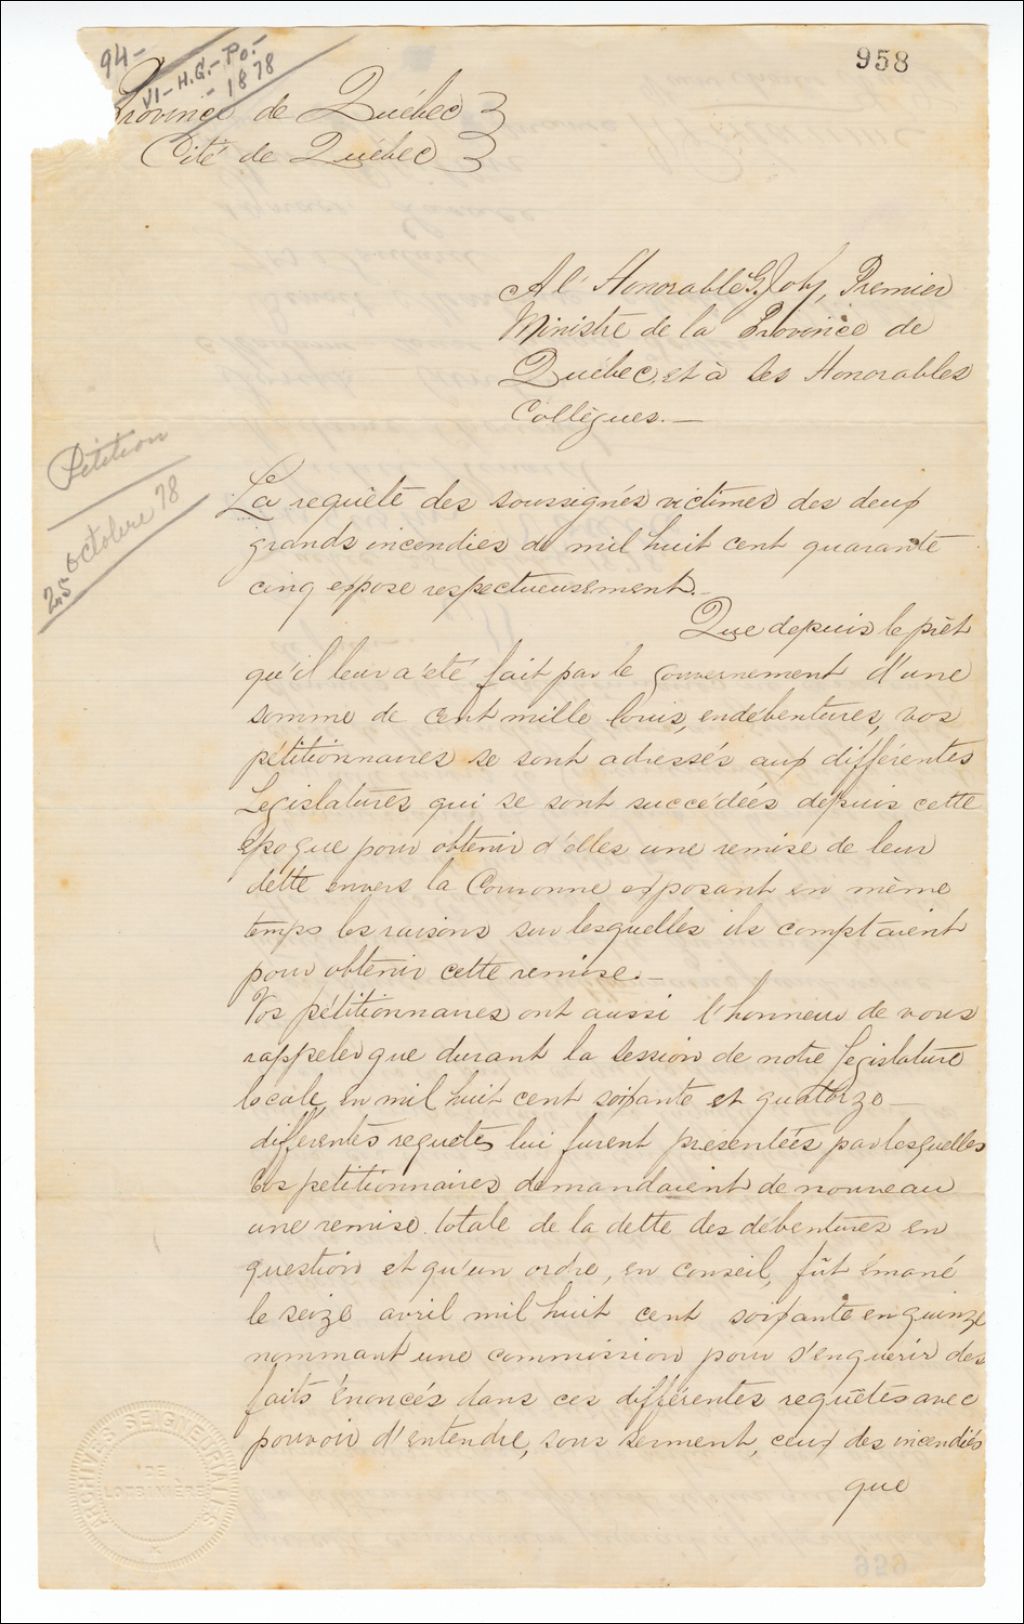 94-
VI-H.G.-Po.-
-1878
958
Province de Québec }
Cité de Québec }
A l'Honorable G. Joly, Premier
Ministre de la Province de
Québec, et à ses Honorables
Collègues.—
Pétition
25 octobre 78
La requête des soussignés victimes des deux
grands incendies de mil huit cent quarante
cinq expose respectueusement.—
Que depuis le prêt
qu'il leur a été fait par le gouvernement d'une
somme de cent mille louis, en débentures, vos
pétitionnaires se sont adressés aux différentes
Legislatures qui se sont succédées depuis cette
époque pour obtenir d'elles une remise de leur
dette envers la Couronne exposant en même
temps les raisons sur lesquelles ils comptaient
pour obtenir cette remise.—
Vos pétitionnaires ont aussi l'honneur de vous
rappeler que durant la session de notre législature
locale, en mil huit cent soixante et quatorze—
différentes requetes lui furent présentées par lesquelles
vos petitionnaires demandaient de nouveau
une remise totale de la dette des débentures en
question et qu'un ordre, en conseil, fût émané
le seize avril mil huit cent soixante en quinze
nommant une commission pour s'enquérir des
faits énoncés dans ces différentes requêtes avec
pouvoir d'entendre, sous serment, ceux des incendiés
que
ARCHIVES SEIGNEURIALES
DE
LOTBINIÈRE
959